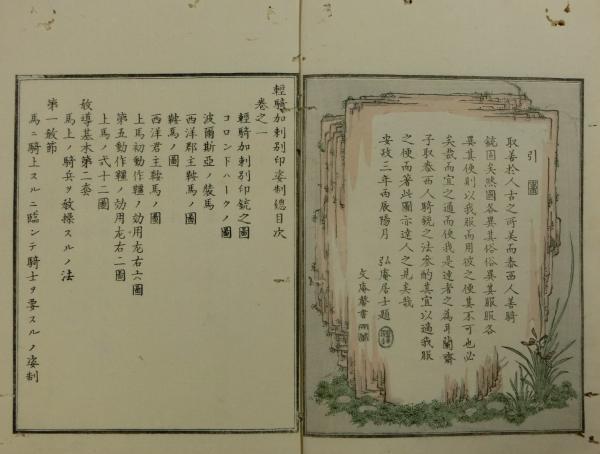 引
取善於人古之所美而泰西人善騎
銃固矣然國各異其俗俗異其服服各
異其便則以我服而用彼之便其不可也必
矣哉而宜之適而使我是達者之為耳蘭齋
子取泰西人騎銃之法參酌其宜以適我服
之便而著此圖亦達人之見矣哉
安政三年丙辰陽月　弘庵居士題
文庵
輕騎加剌別印姿制總目次
卷之一
輕騎加剌別印銃之圖
コロンドハークノ圖
波爾斯亞ノ裝馬
西洋郡主鞍馬ノ圖
鞍馬ノ圖
西洋君主鞍馬ノ圖
上馬初動作糧ノ効用左右六圖
第五動作糧ノ効用左右二圖
上馬ノ弐十二圖
敎導基本第二套
馬上ノ騎兵ヲ敎操スルノ法
第一敎節
馬ニ騎上スルニ臨ンテ騎士ヲ要スルノ姿制